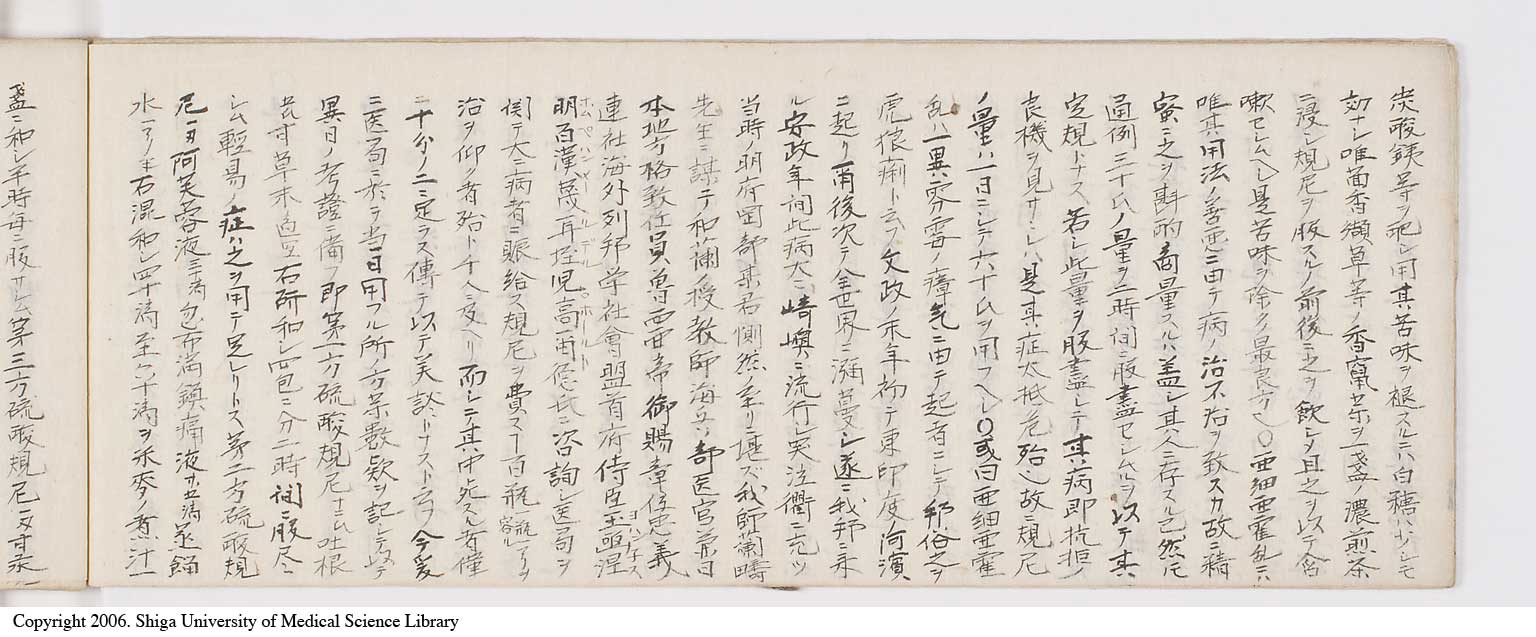 炭酸鋳等ヲ配シ用其苦味ヲ根スルニハ白糖ハ少シモ
効ナシ唯茴香纈草等ノ香竄茶ヲ一盞ノ濃煎茶
ニ浸シ規尼ヲ服スルノ前後ニ之ヲ飲シ且之ヲ以テ含
嗽セシムヘシ是苦味ヲ除クノ最良方也〇亜細亜霍乱ニハ
唯其用法ノ善悪ニ由テ病ノ治不治ヲ致スカ故ニ精
蜜ニ之ヲ斟酌商量スルハ蓋シ其人ニ存スル已然トモ
通例三十氏ノ量ヲ二時間ニ服盡セシムルヲ以テ其
定規トナス若シ此量ヲ服盡シテ其病即抗拒ノ
良機ヲ見サレハ是其症大抵危殆也故ニ規尼
ノ量ハ一日ニシテ六十氏ヲ用フヘシ〇或曰亜細亜霍
乱ハ一異雰雺ノ瘴気ニ由テ起者ニシテ邦俗之ヲ
虎狼痢ト云フ文政ノ末年初テ東印度河濱
ニ起リ爾後次テ全世界ニ瀰蔓シ遂ニ我邦ニ来
ル安政年間此病大ニ崎墺ニ流行シ実泣衢ニ充ツ
当時ノ明府岡部某君惻然ノ至リ堪ズ我師蘭疇
先生ニ謀テ和蘭授教師海兵ノ部医官第日
本地方格致任員曽西帝御賜章佞忠義
連社海外列邦学社會盟首府侍臣王亟涅 ヨハンナス
明百漢蔑耳垤児高甫德氏ニ咨詢シ医司ヲ ホムペハンメールデルホールト
関テ大ニ病者ニ賑給ス規尼ヲ費ス一百瓶
治ヲ仰ク者殆ト千人ニ及ヘリ而シテ其中死スル者僅
ニ十分ノ二ニ定ラズ傳テ以テ美談トナスト云フ今爰
ニ医司ニ於テ当日用フル所ノ方茶數欵ヲ記シテ以テ
異日ノ考證ニ備フ即第一方硫酸規尼十二氏吐根
右所和シ四包ニ分二時間ニ服尽
シム輕易ノ症ハ之ヲ用テ足レリトス第二方硫酸規
尼一刄阿芙蓉液三滴
水一〇半右混和シ四十滴至六十滴ヲ米麥ノ煮汁一
盞ニ和シ半時毎ニ服サシム第三方硫酸規尼一刄
Copyright 2006. Shiga University of Medical Science Library